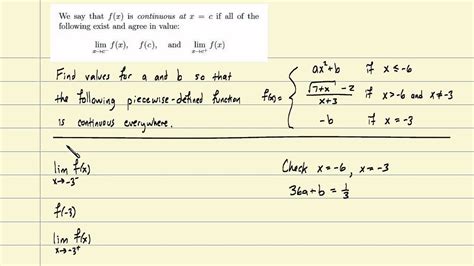 We say that f(x) is continuous at x = c if all of the
following exist and agree in value:
lim x→c⁻ f(x), f(c), and lim x→c⁺ f(x)
Find values for a and b so that
the following piecewise-defined function
is continuous everywhere.
f(x) = { ax²+b if x ≤ -6
√(7+x) - 2 / x+3 if x > -6 and x ≠ -3
-b if x = -3
lim x→-3⁻ f(x)
f(-3)
lim x→-3⁺ f(x)
Check x = -6, x = -3
36a+b = 1/3